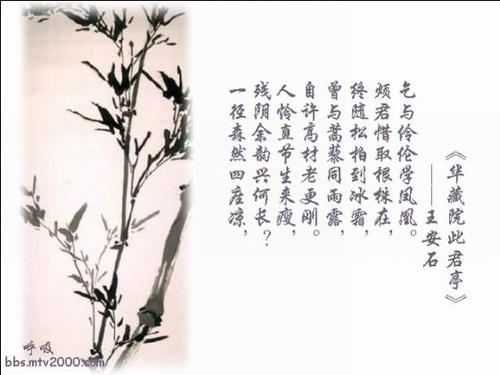 一径森然四座凉,
残阴余韵兴何长?
人怜直节生来瘦,
自许高材老更刚。
曾与蒿藜同雨露,
终随松柏到冰霜,
烦君惜取根株在,
乞与伶伦学凤凰。
《华藏院此君亭》
——王安石
呼吸
bbs.mtv2000.com